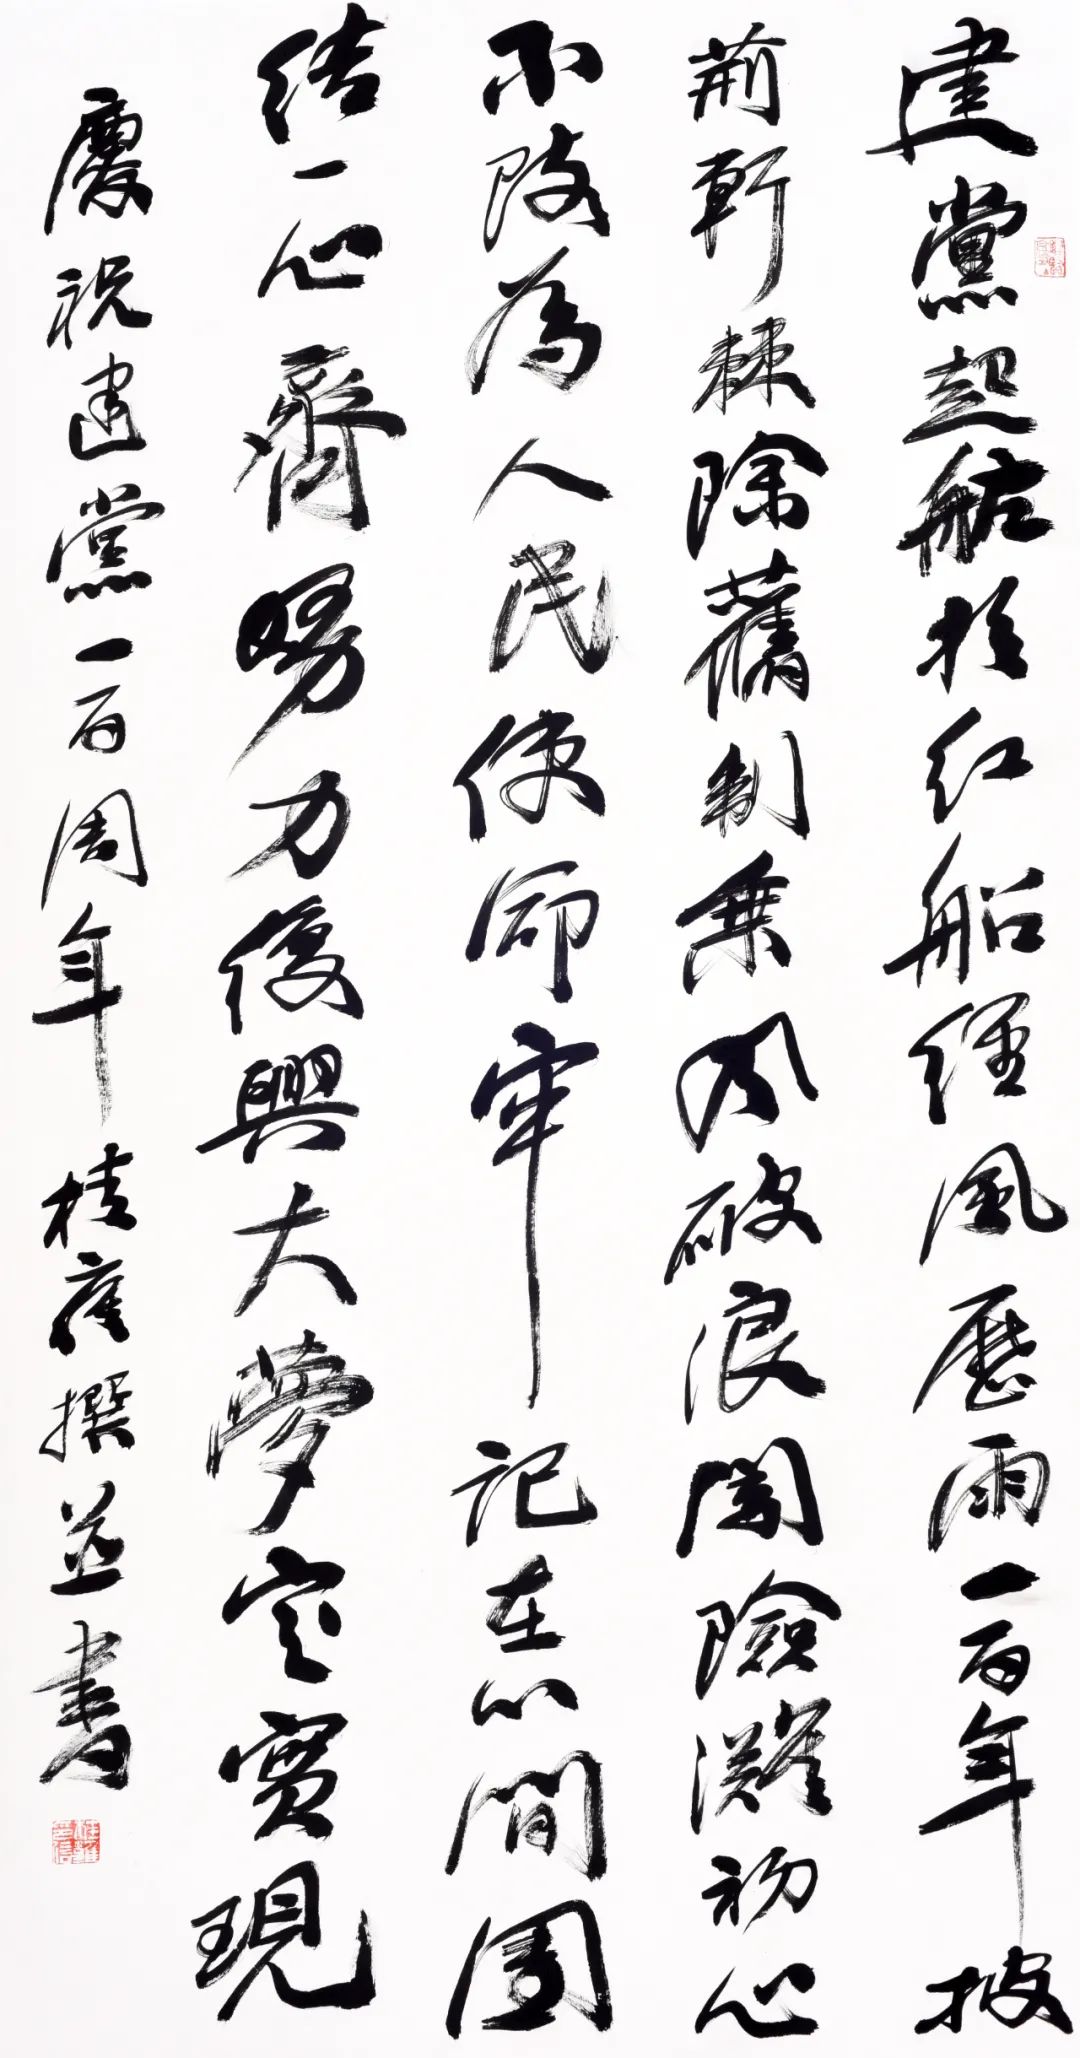 建黨起航於红船經風歷雨一百年披
荊斬棘除舊制乘风破浪闖險灘初心
不改為人民使命牢記在心間團
结一心齊努力復興大夢定實現
慶祝建黨一百周年桂雍撰並書